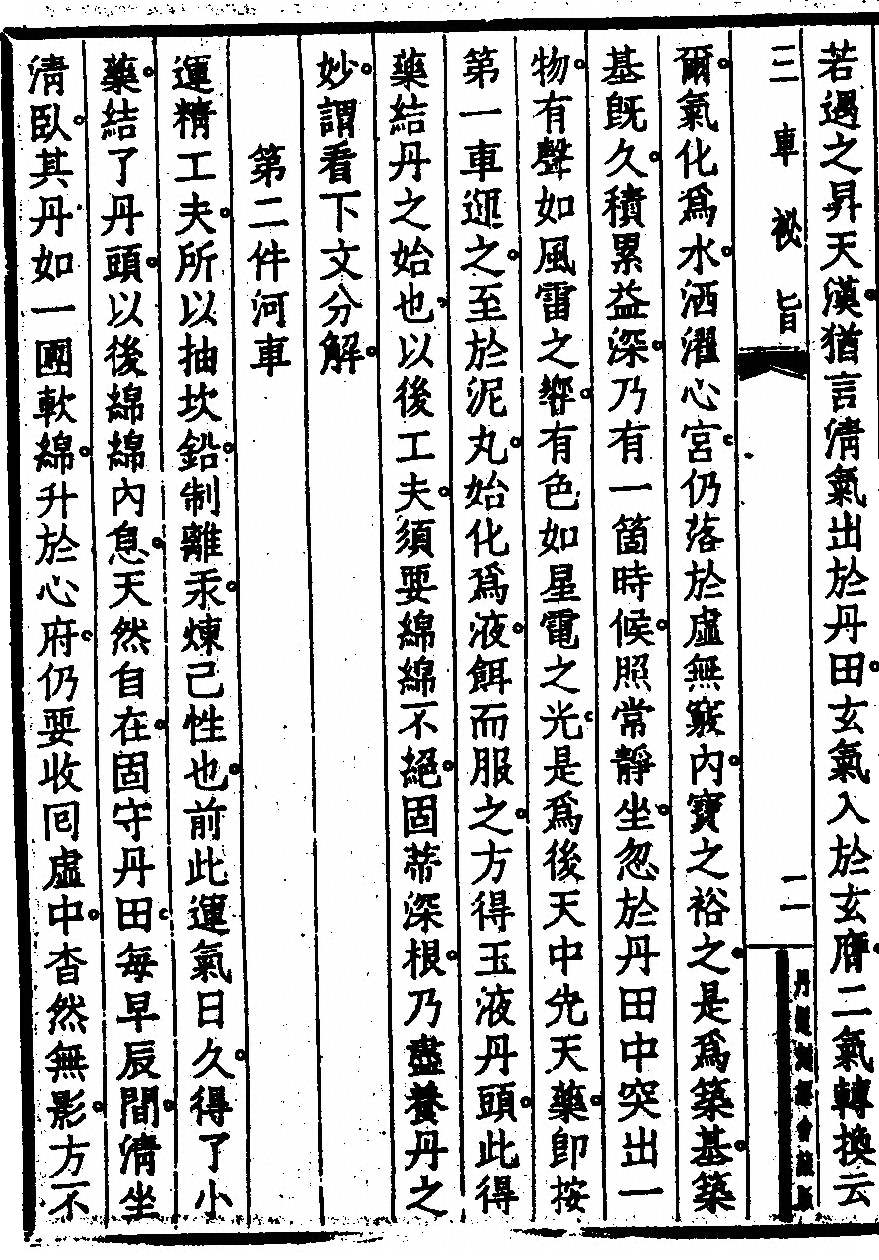 若遇之昇天漢猶言清氣出於丹田玄氣入於玄膺二氣轉換云
三車祕旨
二
爾氣化為水洒濯心宮仍落於虛無竅內寶之裕之是為築基築
基既久積累益深乃有一箇時候照常靜坐忽於丹田中突出一
物有聲如風雷之響有色如星電之光是為後天中先天藥即按
第一車迎之至於泥丸始化為液餌而服之方得玉液丹頭此得
藥結丹之始也以後工夫須要綿綿不絕固蒂深根乃盡養丹之
妙謂看下文分解
第二件河車
運精工夫所以抽坎鉛制離汞煉己性也前此運氣日久得了小
藥結了丹頭以後綿綿內息天然自在固守丹田每早辰間清坐
清臥其丹如一團軟綿升於心府仍要收囘虛中杳然無影方不